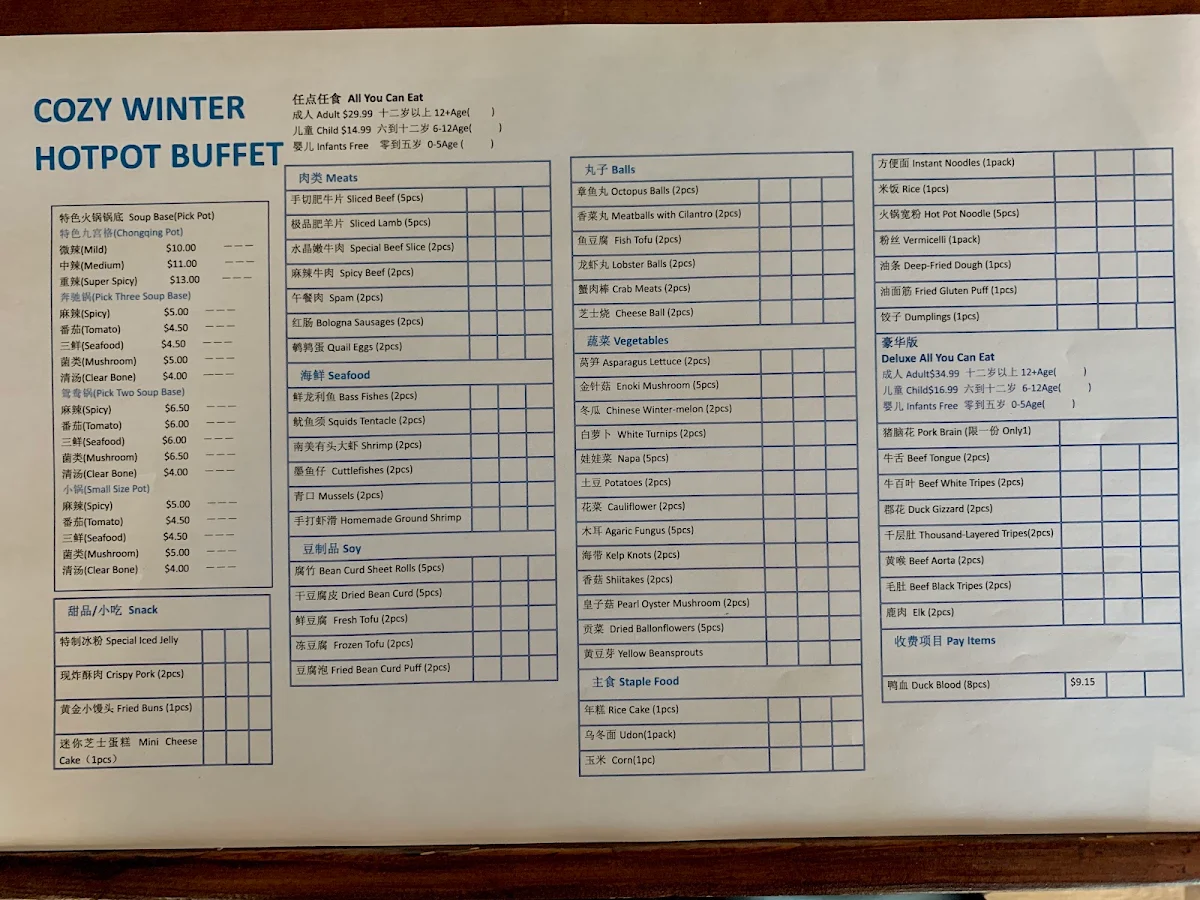 COZY WINTER
HOTPOT BUFFET
任点任食 All You Can Eat
成人 Adult $29.99 十二岁以上 12+Age( )
儿童 Child $14.99 六到十二岁 6-12Age( )
婴儿 Infants Free 零到五岁 0-5Age ( )
特色火锅锅底 Soup Base(Pick Pot)
特色九宫格(Chongqing Pot)
微辣(Mild) $10.00 ———
中辣(Medium) $11.00 ———
重辣(Super Spicy) $13.00 ———
奔驰锅(Pick Three Soup Base)
麻辣(Spicy) $5.00 ———
番茄(Tomato) $4.50 ———
三鲜(Seafood) $4.50 ———
菌类(Mushroom) $5.00 ———
清汤(Clear Bone) $4.00 ———
鸳鸯锅(Pick Two Soup Base)
麻辣(Spicy) $6.50 ———
番茄(Tomato) $6.00 ———
三鲜(Seafood) $6.00 ———
菌类(Mushroom) $6.50 ———
清汤(Clear Bone) $4.00 ———
小锅(Small Size Pot)
麻辣(Spicy) $5.00 ———
番茄(Tomato) $4.50 ———
三鲜(Seafood) $4.50 ———
菌类(Mushroom) $5.00 ———
清汤(Clear Bone) $4.00 ———
甜品/小吃 Snack
特制冰粉 Special Iced Jelly
现炸酥肉 Crispy Pork (2pcs)
黄金小馒头 Fried Buns (1pcs)
迷你芝士蛋糕 Mini Cheese
Cake（1pcs）
肉类 Meats
手切肥牛片 Sliced Beef (5pcs)
极品肥羊片 Sliced Lamb (5pcs)
水晶嫩牛肉 Special Beef Slice (2pcs)
麻辣牛肉 Spicy Beef (2pcs)
午餐肉 Spam (2pcs)
红肠 Bologna Sausages (2pcs)
鹌鹑蛋 Quail Eggs (2pcs)
海鲜 Seafood
鲜龙利鱼 Bass Fishes (2pcs)
鱿鱼须 Squids Tentacle (2pcs)
南美有头大虾 Shrimp (2pcs)
墨鱼仔 Cuttlefishes (2pcs)
青口 Mussels (2pcs)
手打虾滑 Homemade Ground Shrimp
豆制品 Soy
腐竹 Bean Curd Sheet Rolls (5pcs)
干豆腐皮 Dried Bean Curd (5pcs)
鲜豆腐 Fresh Tofu (2pcs)
冻豆腐 Frozen Tofu (2pcs)
豆腐泡 Fried Bean Curd Puff (2pcs)
丸子 Balls
章鱼丸 Octopus Balls (2pcs)
香菜丸 Meatballs with Cilantro (2pcs)
鱼豆腐 Fish Tofu (2pcs)
龙虾丸 Lobster Balls (2pcs)
蟹肉棒 Crab Meats (2pcs)
芝士烧 Cheese Ball (2pcs)
蔬菜 Vegetables
莴笋 Asparagus Lettuce (2pcs)
金针菇 Enoki Mushroom (5pcs)
冬瓜 Chinese Winter-melon (2pcs)
白萝卜 White Turnips (2pcs)
娃娃菜 Napa (5pcs)
土豆 Potatoes (2pcs)
花菜 Cauliflower (2pcs)
木耳 Agaric Fungus (5pcs)
海带 Kelp Knots (2pcs)
香菇 Shiitakes (2pcs)
皇子菇 Pearl Oyster Mushroom (2pcs)
贡菜 Dried Ballonflowers (5pcs)
黄豆芽 Yellow Beansprouts
主食 Staple Food
年糕 Rice Cake (1pcs)
乌冬面 Udon(1pack)
玉米 Corn(1pc)
方便面 Instant Noodles (1pack)
米饭 Rice (1pcs)
火锅宽粉 Hot Pot Noodle (5pcs)
粉丝 Vermicelli (1pack)
油条 Deep-Fried Dough (1pcs)
油面筋 Fried Gluten Puff (1pcs)
饺子 Dumplings (1pcs)
豪华版
Deluxe All You Can Eat
成人 Adult$34.99 十二岁以上 12+Age( )
儿童 Child$16.99 六到十二岁 6-12Age( )
婴儿 Infants Free 零到五岁 0-5Age( )
猪脑花 Pork Brain (限一份 Only1)
牛舌 Beef Tongue (2pcs)
牛百叶 Beef White Tripes (2pcs)
郡花 Duck Gizzard (2pcs)
千层肚 Thousand-Layered Tripes(2pcs)
黄喉 Beef Aorta (2pcs)
毛肚 Beef Black Tripes (2pcs)
鹿肉 Elk (2pcs)
收费项目 Pay Items
鸭血 Duck Blood (8pcs) $9.15